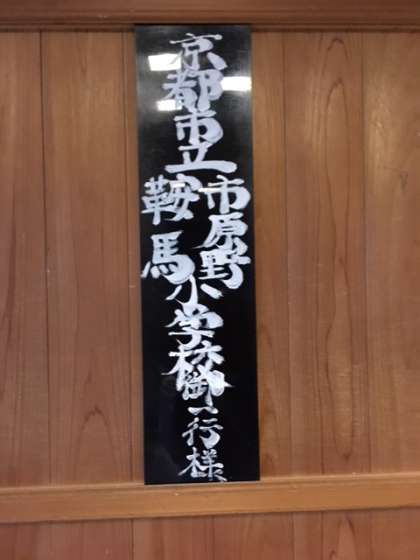 京都市立
市原野
鞍馬
小学校御一行様